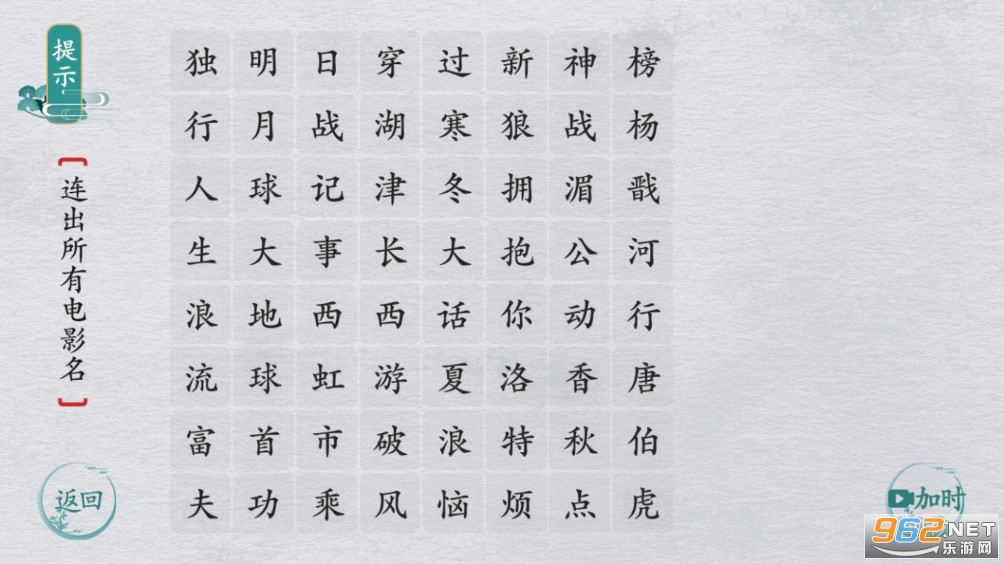 提示
连出所有电影名
独明日穿过新神榜
行月战湖寒狼战杨
人球记津冬拥湄戬
生大事长大抱公河
浪地西西话你动行
流球虹游夏洛香唐
富首市破浪特秋伯
夫功乘风恼烦点虎
返回
加时
962.NET
乐游网